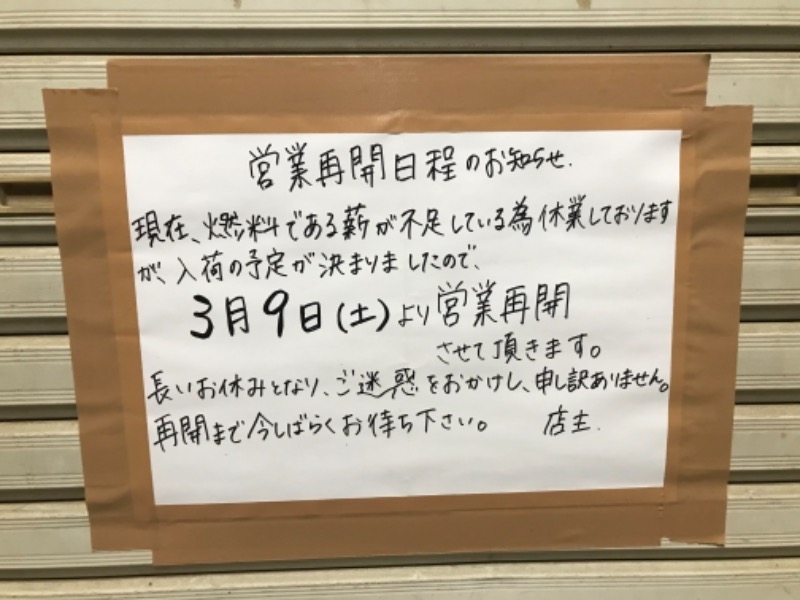 営業再開日程のお知らせ.
現在、燃料である薪が不足している為休業しております
が、入荷の予定が決まりましたので、
3月9日(土)より営業再開
させて頂きます。
長いお休みとなり、ご迷惑をおかけし、申し訳ありません。
再開まで今しばらくお待ち下さい。 店主.